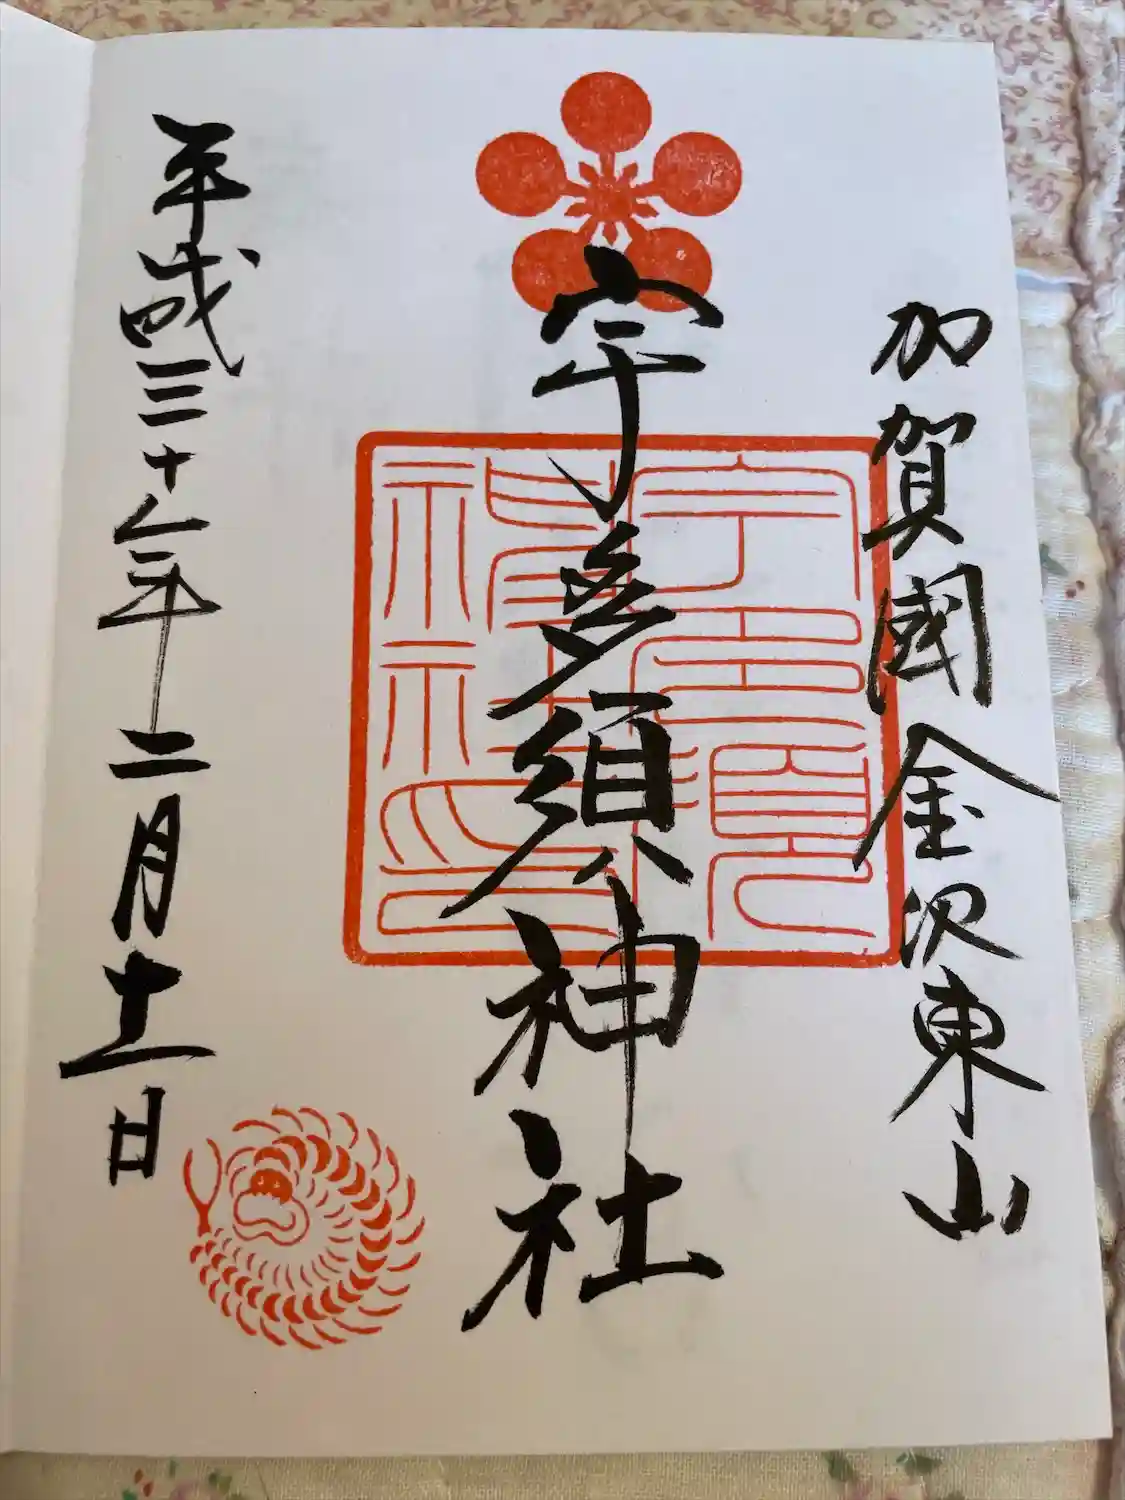 加賀國金沢東山
宇多須神社
平成三十一年二月十一日
宇多須
神社印